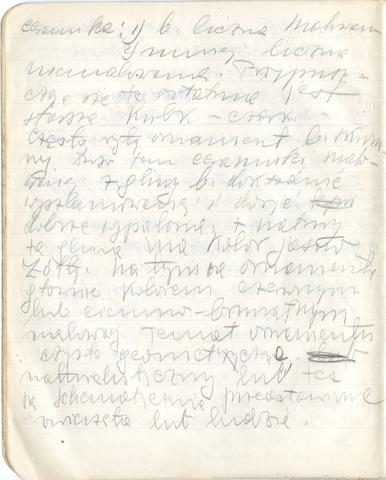 ceramika: 1) b. liczna malowana
2) mniej liczna
niemalowana. Przypusz-
cza się że ta ostatnia jest
starsza
często ryty ornament b.
ny tam ceramiki malo-
wanej z gliny b. dokładnie
i dosyć
dobrze wypalonej, z natury
ta glina ma kolor jasno
żółty. na tym są ornamenty
głównie kolorem czerwonym
lub ciemno-brunatnym
malowany. Temat ornamentu
czysto geometryczny
naturalistyczny lub też
schematycznie przedstawione
zwierzęta lub ludzie.